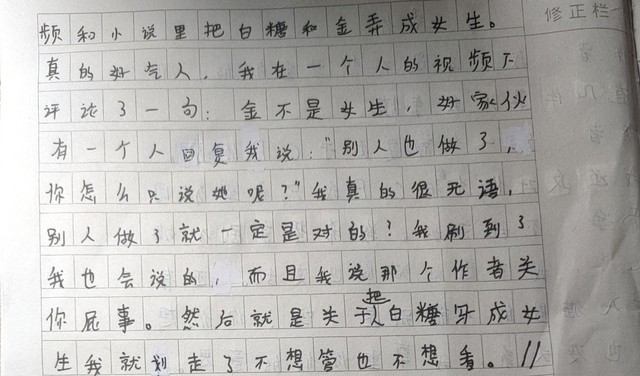 频和小说里把白糖和金弄成女生。 修正栏
真的好气人，我在一个人的视频下
评论了一句：金不是女生，好家伙
有一个人回复我说："别人也做了，
你怎么只说她呢？"我真的很无语，
别人做了就一定是对的？我刷到了
我也会说的，而且我说那个作者关
你屁事。然后就是关于人把白糖写成女
生我就划走了不想管也不想看。//